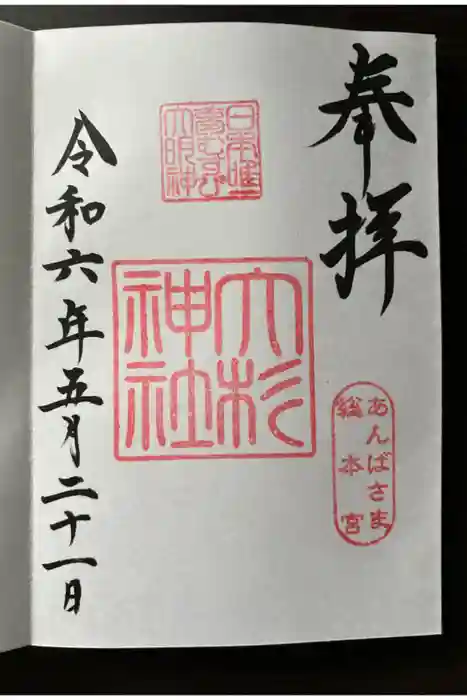 奉拝
あんばさま
総本宮
日本唯一
夢むすび
大明神
大杉
神社
令和六年五月二十一日